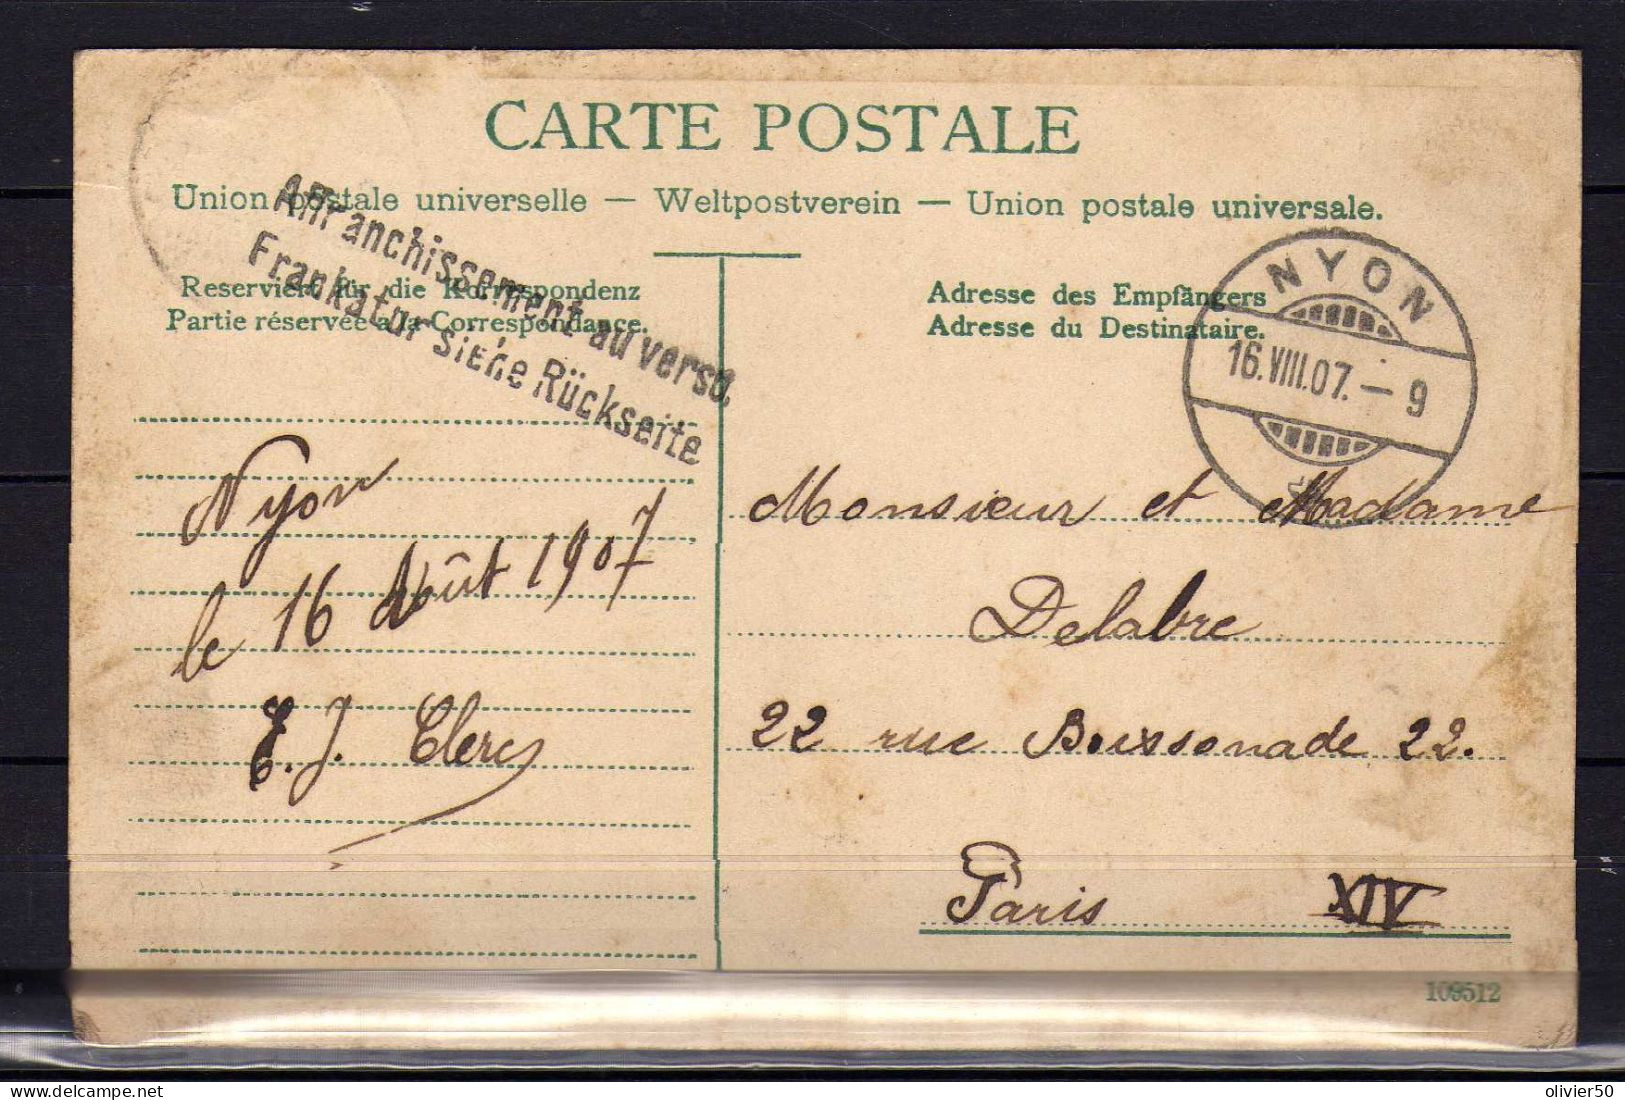 CARTE POSTALE
Union postale universelle — Weltpostverein — Union postale universale.
Affranchissement au verso.
Frankatur siehe Rückseite
Reserviert für die Korrespondenz
Partie réservée à la Correspondance.
Adresse des Empfängers
Adresse du Destinataire.
NYON
16.VIII.07.–9
Nyon
le 16 Août 1907
E. J. Clerc
Monsieur et Madame
Delabre
22 rue Boissonade 22.
Paris XIV
109512
olivier50